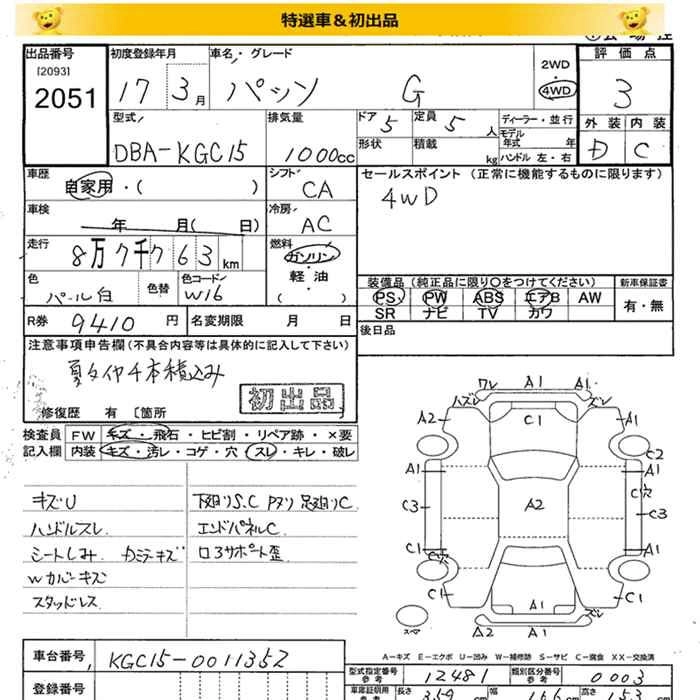 特選車＆初出品
出品番号
[2093]
2051
初度登録年月
17 3月
車名・グレード
パッソ G
2WD
4WD
評価点
3
外装 内装
D C
型式
DBA-KGC15
排気量
1000cc
ドア 5
定員 5人
ディーラー・並行
モデル年式 年
形状
積載 kg
ハンドル 左・右
車歴
自家用・( )
シフト
CA
セールスポイント (正常に機能するものに限ります)
4WD
車検
年 月( 日)
冷房
AC
走行
8万7千763km
燃料
ガソリン・軽油
( )
色
パール白
色替
色コード
W16
装備品 (純正品に限り○をつけてください)
PS PW ABS エアB AW
SR ナビ TV カワ
新車保証書
有・無
R券 9410円
名変期限 月 日
後日品
注意事項申告欄 (不具合内容等は具体的に記入して下さい)
夏タイヤ4本積込み
初出品
修復歴 有 [箇所
検査員記入欄
FW キズ・飛石・ヒビ割・リペア跡・×要
内装 キズ・汚レ・コゲ・穴・スレ・キレ・破レ
キズU
ハンドルスレ
シートしみ
Wカバーキズ
スタッドレス
下廻りS.C Pヌリ 足廻りC
エンドパネルC
コアサポート歪
ワレ A1 A1
ハズレ ズレ
A2 C1 A1
C2
A1 A1
C穴
C3 A2 C3
C1 A1
C穴
C1 A1 C1
ズレ
A2 A1
スペア
A-キズ E-エクボ U-凹み W-補修跡 S-サビ C-腐食 XX-交換済
車台番号 KGC15-0011352
型式指定番号 参考 12481
類別区分番号 参考 0003
登録番号
車庫証明用 参考
長さ 359
幅 166
高さ 153